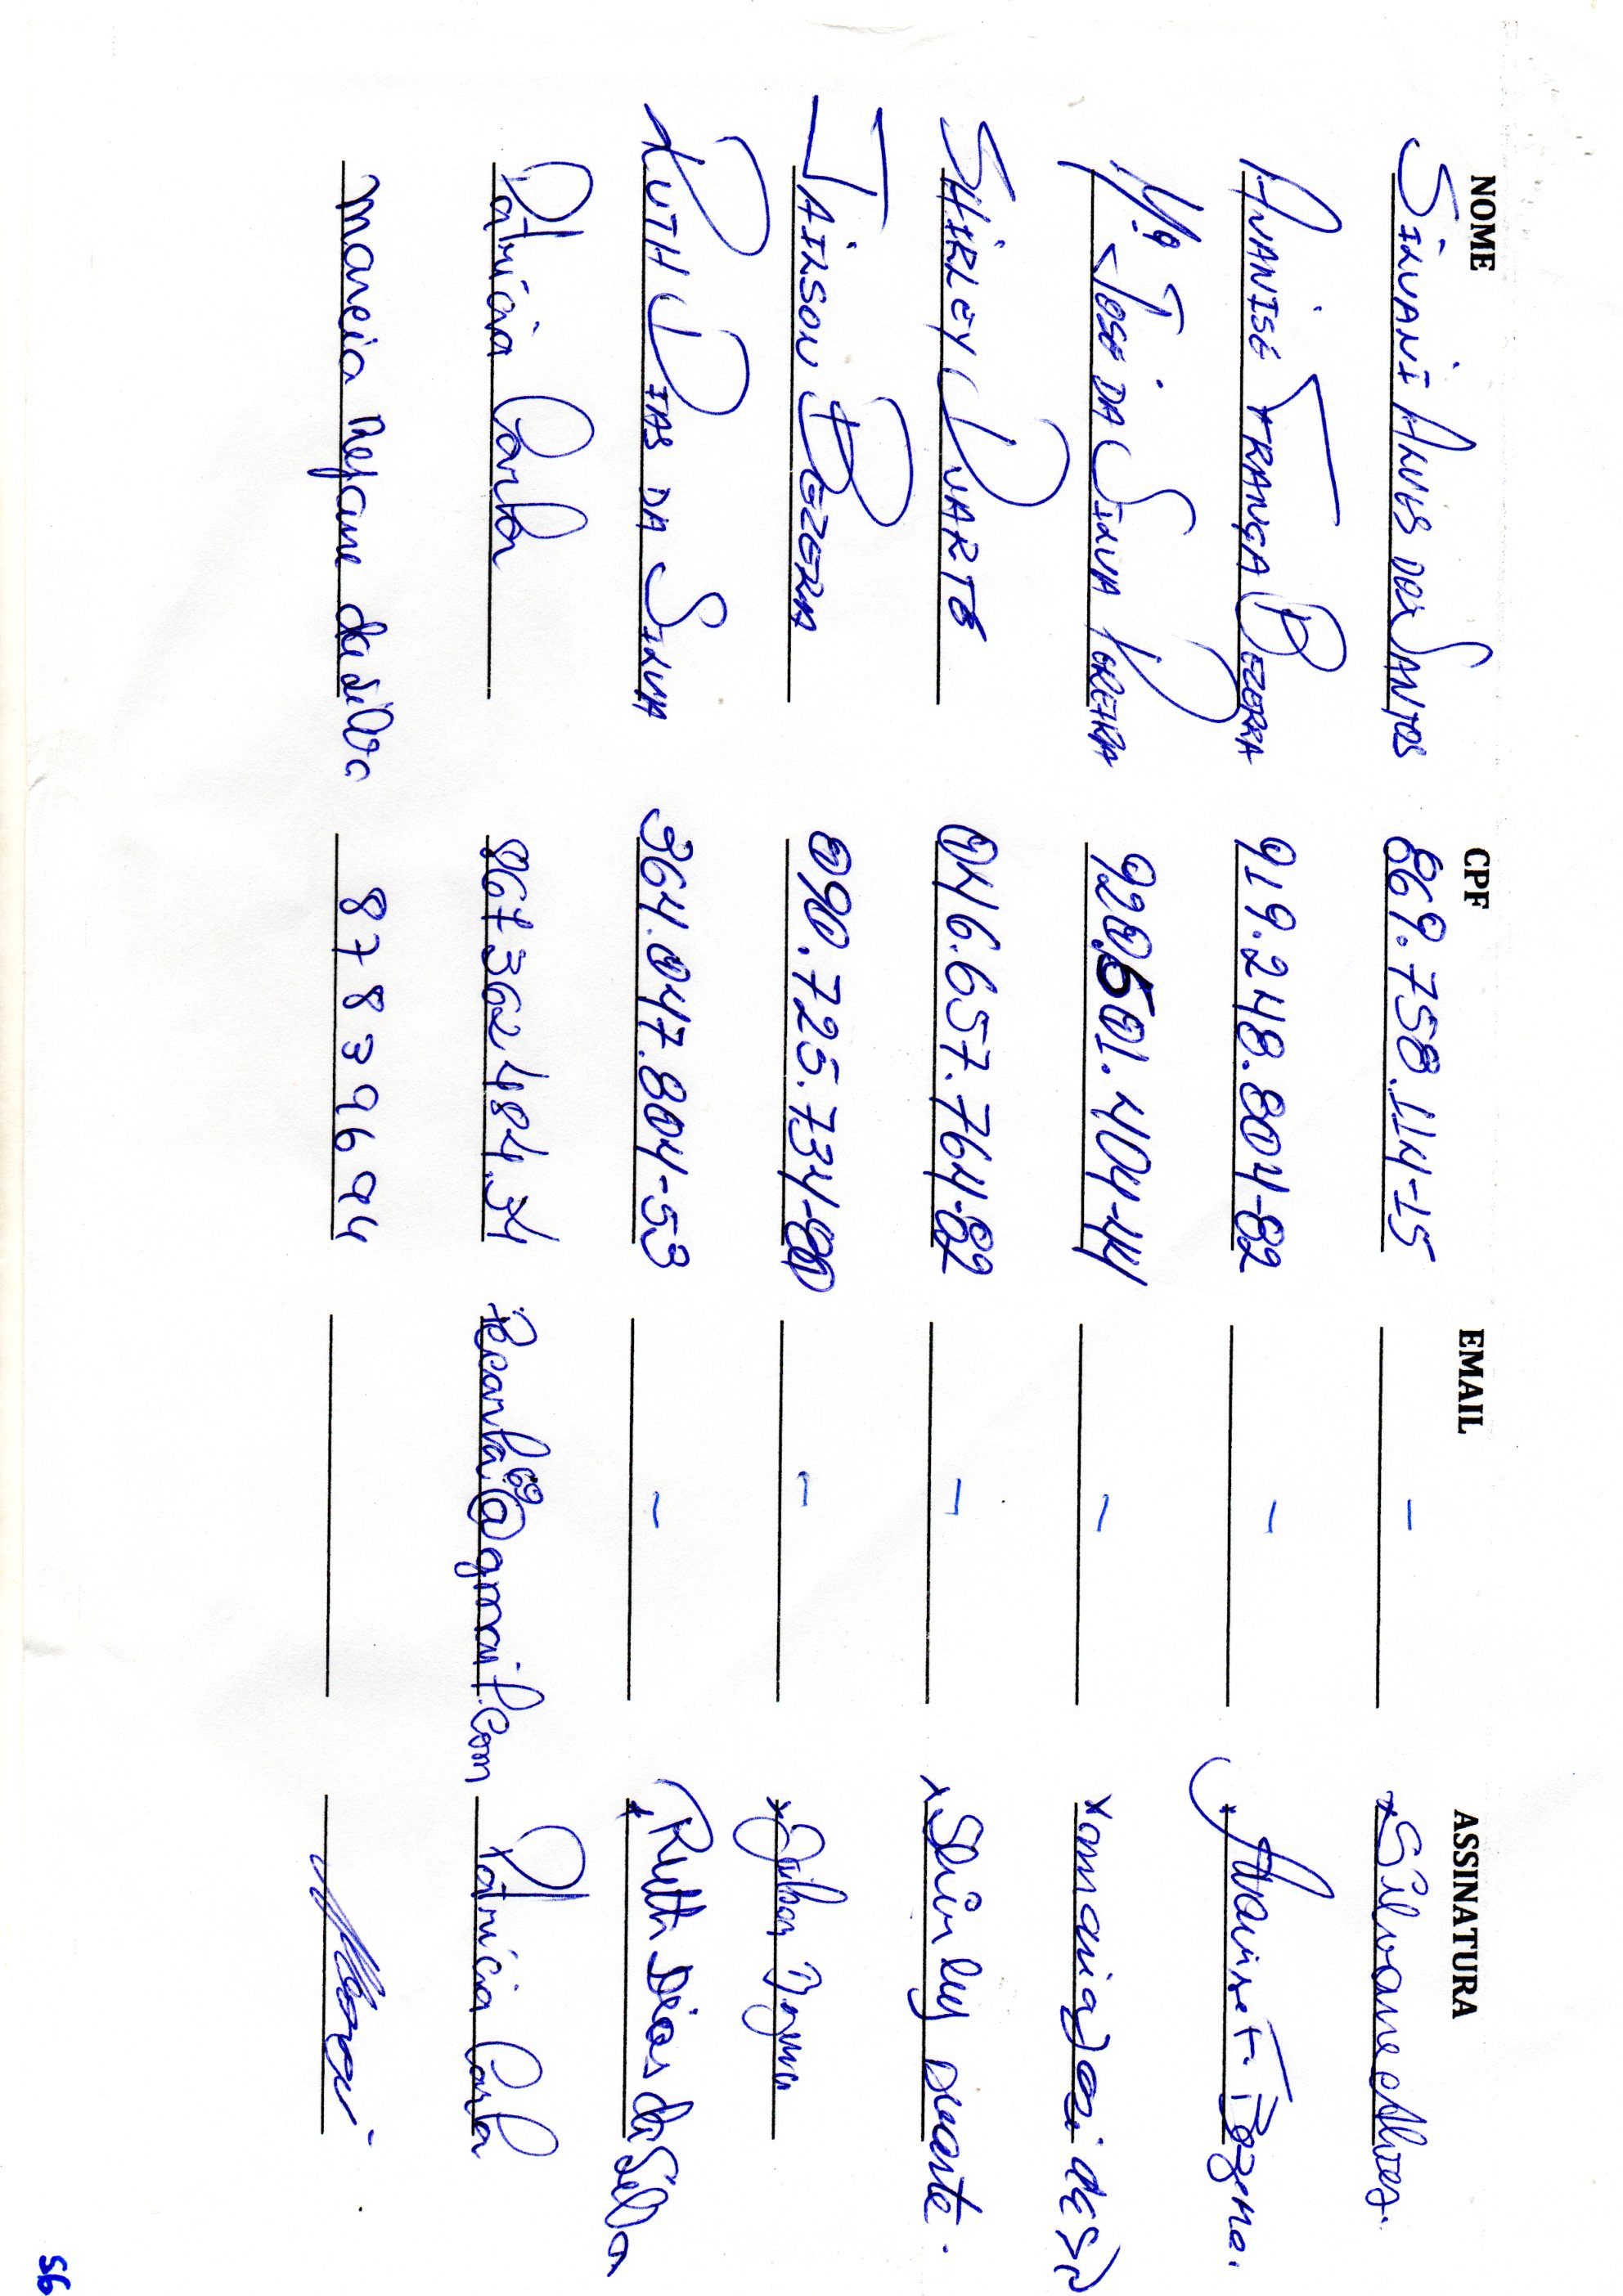 NOME CPF EMAIL ASSINATURA
SILVANI ALVES DOS SANTOS 869.758.114-15 - x Silvane Alves.
AVANISE FRANÇA BEZERRA 919.248.804-82 - Avanise F. Bezerra.
Mª JOSE DA SILVA POREIRA 920.501.404-44 - x maria José da S P
SHIRLEY DUARTE 046.657.764-82 - x Shirley Duarte.
JAILSON BEZERRA 090.725.734-80 - x Jailson
RUTH DIAS DA SILVA 364.047.804-53 - x Ruth Dias da Silva
Patricia Carla 867362484.34 pcarla69@gmail.com Patricia Carla
marcia Rejane da silva 87883 9694
56